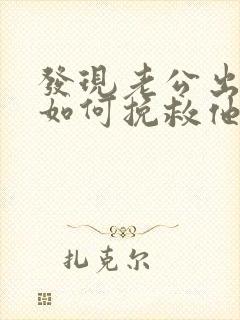 發現老公出
如何挽救他
扎克尔